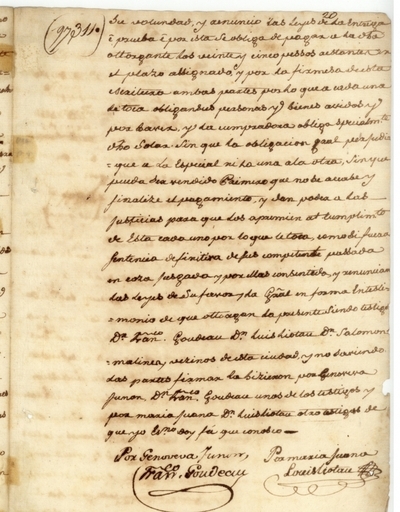 20
(9731.)
Su voluntad, y renuncio las Leyes de la Entrega
è prueba è por esta se obliga de pagar a la dha
otorgante los veinte y cinco pessos restantes en
el plazo assignado, y por la firmesa de esta
escritura ambas partes por lo que a cada una
le toca obligan sus personas, y bienes avidos y
por haver, y la compradora obliga specialmte
dho Solar sin que la obligacion gral perjudi
que a la Especial ni la una a la otra, sin que
pueda ser vendido Primero que no se acabe y
finalize el pagamiento, y dan poder a las
Justicias para que los apremien al cumplimto
de Esta cada uno por lo que le toca, como si fuera
Sentencia definitiva de Jues competente passada
en cosa Jusgada y por ellas consentida, y renuncian
las Leyes de Su favor y la Gral en forma En testi
monio de que otorgan la presente siendo testigos
Dn Franco Goudeau Dn Luis Liotau Dn Salomon
Malines, vezinos de esta ciudad, y no saviendo
las partes firmar la hizieron por Genoveva
Junon, Dn Franco Goudeau unos de los testigos y
por maria Juana Dn Luis Liotau otro testigos de
que yo Esno doy fé que conosco—
Por Genoveva Junon,
Franco Goudeau
Por maria Juana
Louis Liotau